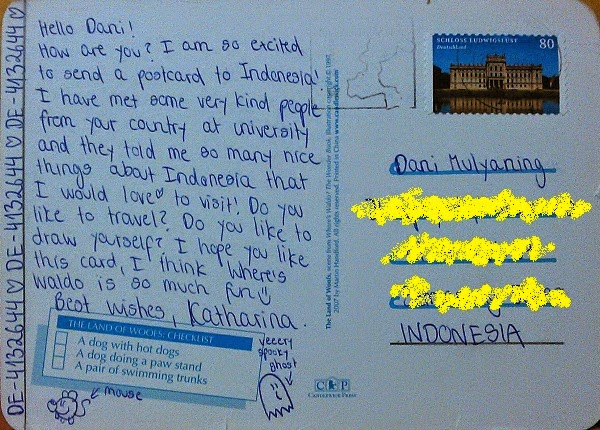 DE-4132644 ♡ DE-4132644 ♡ DE-4132644 ♡ DE-4132644 ♡
Hello Dani!
How are you? I am so excited
to send a postcard to Indonesia!
I have met some very kind people
from your country at university
and they told me so many nice
things about Indonesia that
I would love♡ to visit! Do you
like to travel? Do you like to
draw yourself? I hope you like
this card, I think Where's
Waldo is so much fun☺
Best wishes, Katharina.
THE LAND OF WOOFS: CHECKLIST
A dog with hot dogs
A dog doing a paw stand
A pair of swimming trunks
mouse
veeery
spooky
ghost
The Land of Woofs, scene from Where's Waldo? The Wonder Book. Illustration copyright © 1997,
2007 by Martin Handford. All rights reserved. Printed in China. www.candlewick.com
CANDLEWICK PRESS
SCHLOSS LUDWIGSLUST
Deutschland
80
Dani Mulyaning
INDONESIA